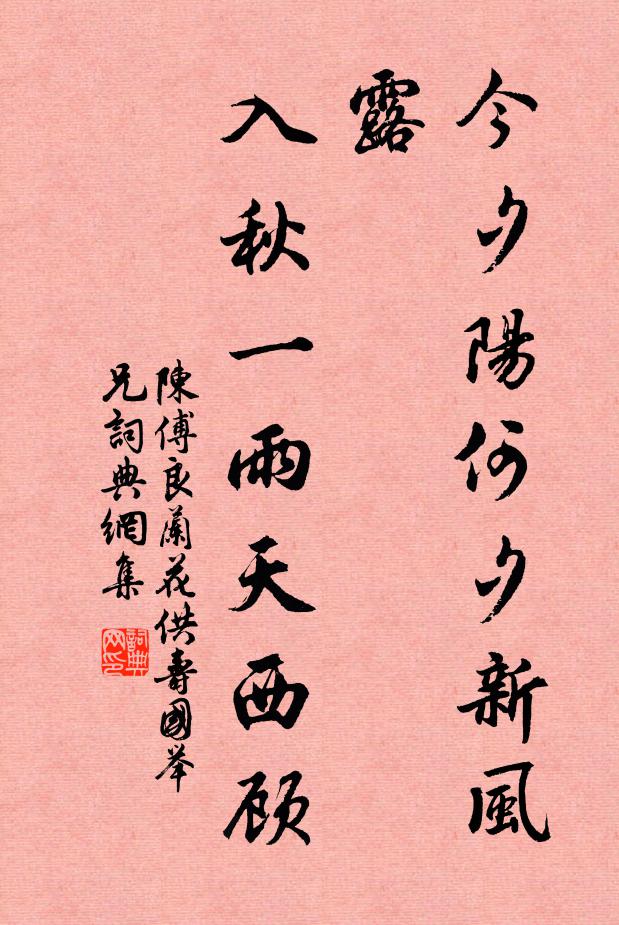 今夕陽何夕新風
露
入秋一雨天西顾
陳傅良蘭花供壽國举
兄詞典網集
詞典网印